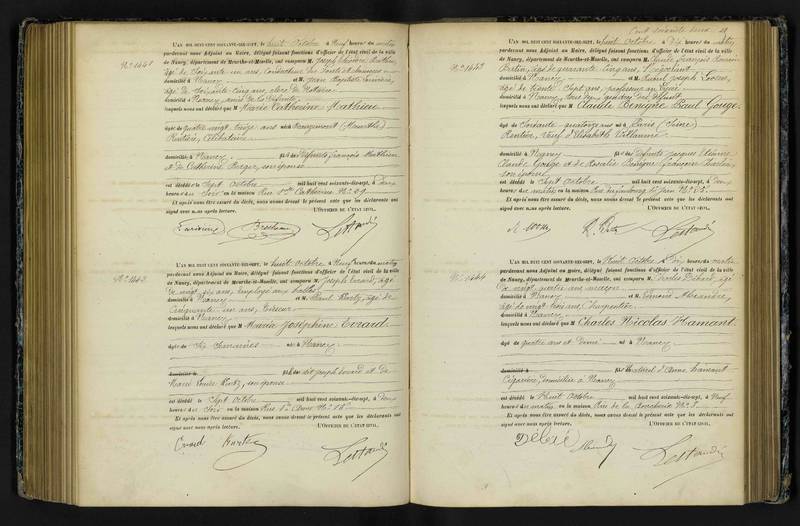 N° 1441
L'AN MIL HUIT CENT SOIXANTE-DIX-SEPT, le huit Octobre à Neuf heures du matin
pardevant nous Adjoint au Maire, délégué faisant fonctions d'officier de l'état civil de la ville
de Nancy, département de Meurthe-et-Moselle, ont comparu M. Joseph
âgé de Soixante un ans, Conducteur des Ponts et chaussées
domicilié à Nancy et M. Jean Baptiste
âgé de soixante cinq ans, clerc de Notaire
domicilié à Nancy, amis de la défunte
lesquels nous ont déclaré que M Marie Catherine Mathieu
âgée de quatre vingt treize ans née à
Rentière, Célibataire
domiciliée à Nancy fille de Défunts François Mathieu
et de Catherine son épouse
est décédée le Sept Octobre mil huit cent soixante-dix-sept, à Deux
heures du Soir en la maison Rue Ste Catherine N°
Et après nous être assuré du décès, nous avons dressé le présent acte que les déclarants ont
signé avec nous après lecture. L'OFFICIER DE L'ÉTAT CIVIL,
L'AN MIL HUIT CENT SOIXANTE-DIX-SEPT, le huit Octobre à Neuf heures du matin
pardevant nous Adjoint au Maire, délégué faisant fonctions d'officier de l'état civil de la ville
de Nancy, département de Meurthe-et-Moselle, ont comparu M. Joseph Evrard, âgé
de vingt six ans, employé aux
domicilié à Nancy et M. Paul Kurtz, âgé de
Cinquante un ans,
domicilié à Nancy
lesquels nous ont déclaré que M Maria Joséphine Evrard
âgée de Six Semaines née à Nancy
fille du dit Joseph Evrard et de
Marie Louise Kurtz, son épouse
est décédée le Sept Octobre mil huit cent soixante-dix-sept, à Deux
heures du Soir en la maison Rue N°
Et après nous être assuré du décès, nous avons dressé le présent acte que les déclarants ont
signé avec nous après lecture. L'OFFICIER DE L'ÉTAT CIVIL,
Evrard Kurtz
Cent soixante deux
N° 1443
L'AN MIL HUIT CENT SOIXANTE-DIX-SEPT, le huit Octobre à Dix heures du matin
pardevant nous Adjoint au Maire, délégué faisant fonctions d'officier de l'état civil de la ville
de Nancy, département de Meurthe-et-Moselle, ont comparu M. François
âgé de quarante Cinq ans, Négociant
domicilié à Nancy et M. Paul Joseph
âgé de trente Sept ans, professeur au Lycée
domicilié à Nancy, tous deux gendres du défunt
lesquels nous ont déclaré que M Claude Benigne Paul Gouge
âgé de Soixante quatorze ans né à Paris (Seine)
Rentier, veuf d'Elisabeth Villaume
domicilié à Nancy fils de Défunts Jacques Etienne
Claude Gouge et de Rosalie Benigne Françoise
son épouse
est décédé le Sept Octobre mil huit cent soixante-dix-sept, à Deux
heures du matin en la maison Rue N°
Et après nous être assuré du décès, nous avons dressé le présent acte que les déclarants ont
signé avec nous après lecture. L'OFFICIER DE L'ÉTAT CIVIL,
N° 1444
L'AN MIL HUIT CENT SOIXANTE-DIX-SEPT, le Huit Octobre à Dix heures du matin
pardevant nous Adjoint au Maire, délégué faisant fonctions d'officier de l'état civil de la ville
de Nancy, département de Meurthe-et-Moselle, ont comparu M. Charles âgé
de vingt quatre ans
domicilié à Nancy et M. Edmond Alexandre,
âgé de vingt trois ans, Charpentier
domicilié à Nancy
lesquels nous ont déclaré que M Charles Nicolas Hamant
âgé de quatre ans et demi né à Nancy
fils naturel d'Anne Hamant
Cigarière, domiciliée à Nancy
est décédé le Huit Octobre mil huit cent soixante-dix-sept, à Neuf
heures du matin en la maison Rue de la N°
Et après nous être assuré du décès, nous avons dressé le présent acte que les déclarants ont
signé avec nous après lecture. L'OFFICIER DE L'ÉTAT CIVIL,